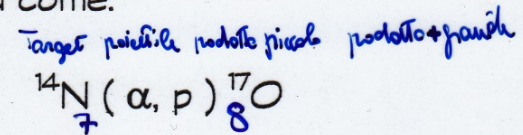 come:
Target proiettile prodotto piccolo prodotto + grande
¹⁴N ( α, p ) ¹⁷O
7 8